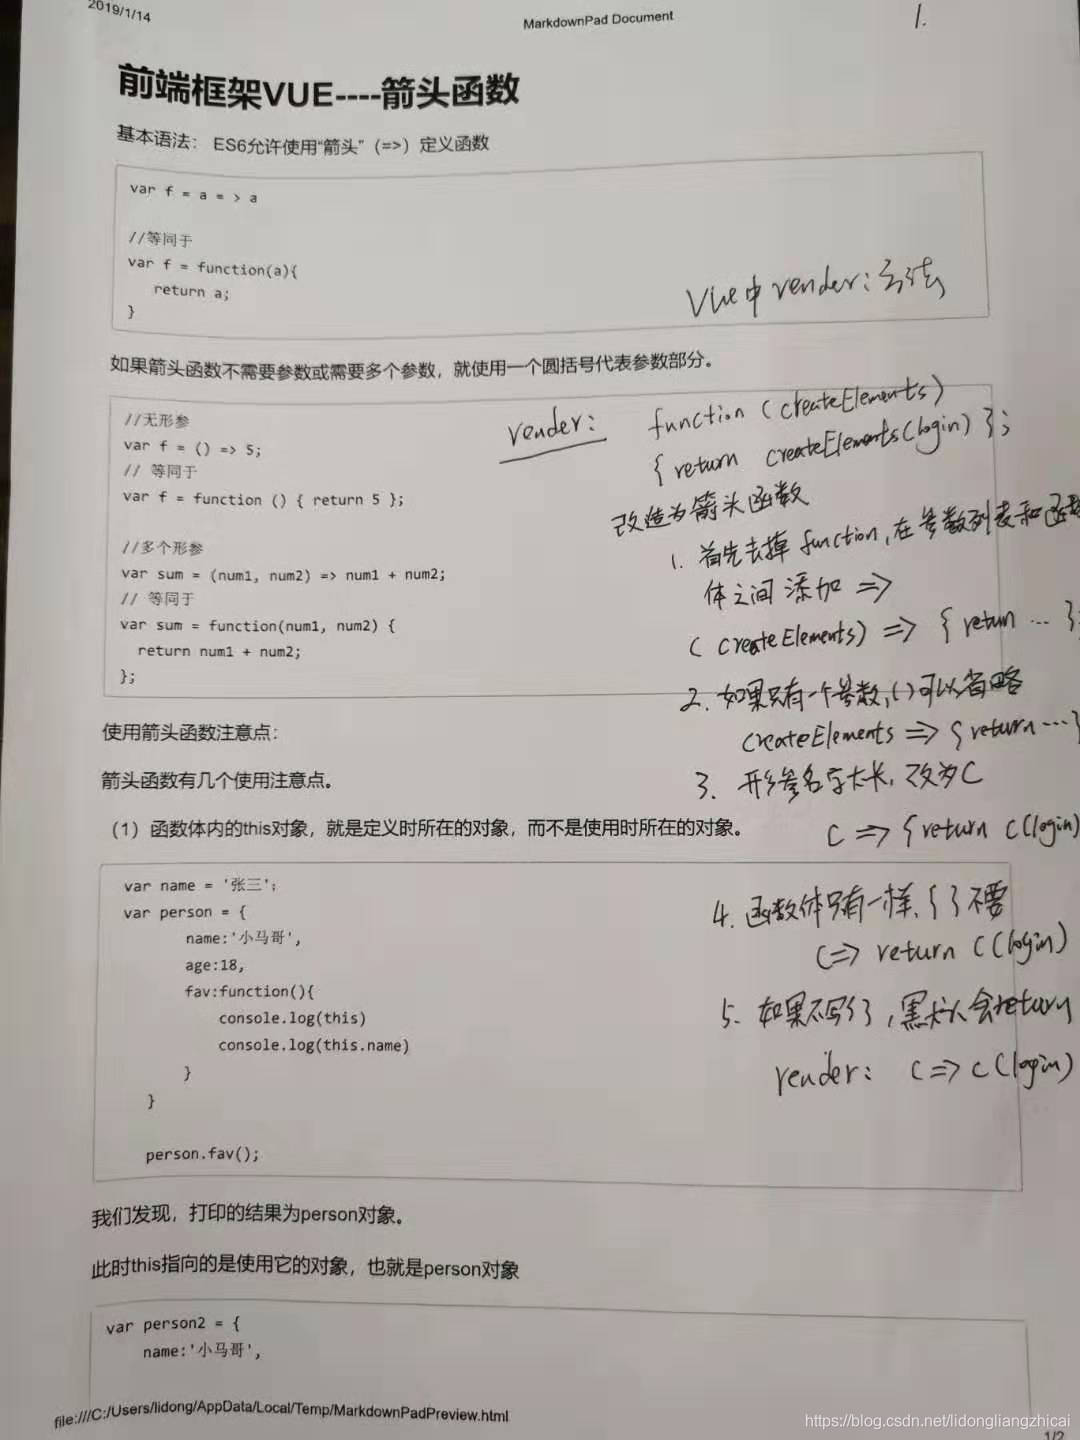 2019/1/14
MarkdownPad Document
1.
前端框架VUE----箭头函数
基本语法： ES6允许使用“箭头”（=>）定义函数
var f = a = > a
//等同于
var f = function(a){
return a;
}
Vue中render:方法
如果箭头函数不需要参数或需要多个参数，就使用一个圆括号代表参数部分。
//无形参
var f = () => 5;
// 等同于
var f = function () { return 5 };
//多个形参
var sum = (num1, num2) => num1 + num2;
// 等同于
var sum = function(num1, num2) {
return num1 + num2;
};
render: function (createElements)
{ return createElements(login) };
改造为箭头函数
1. 首先去掉 function,在参数列表和函数
体之间 添加 =>
( createElements) => { return ... };
2. 如果只有一个参数,()可以省略
createElements => { return ... }
3. 形参名字太长,改为C
C => { return c(login)
4. 函数体只有一样,{}不要
C=> return C(login)
5. 如果不写{},默认会return
render: C=> c(login)
使用箭头函数注意点：
箭头函数有几个使用注意点。
（1）函数体内的this对象，就是定义时所在的对象，而不是使用时所在的对象。
var name = '张三';
var person = {
name:'小马哥',
age:18,
fav:function(){
console.log(this)
console.log(this.name)
}
}
person.fav();
我们发现，打印的结果为person对象。
此时this指向的是使用它的对象，也就是person对象
var person2 = {
name:'小马哥',
file:///C:/Users/lidong/AppData/Local/Temp/MarkdownPadPreview.html
https://blog.csdn.net/lidongliangzhicai
1/2